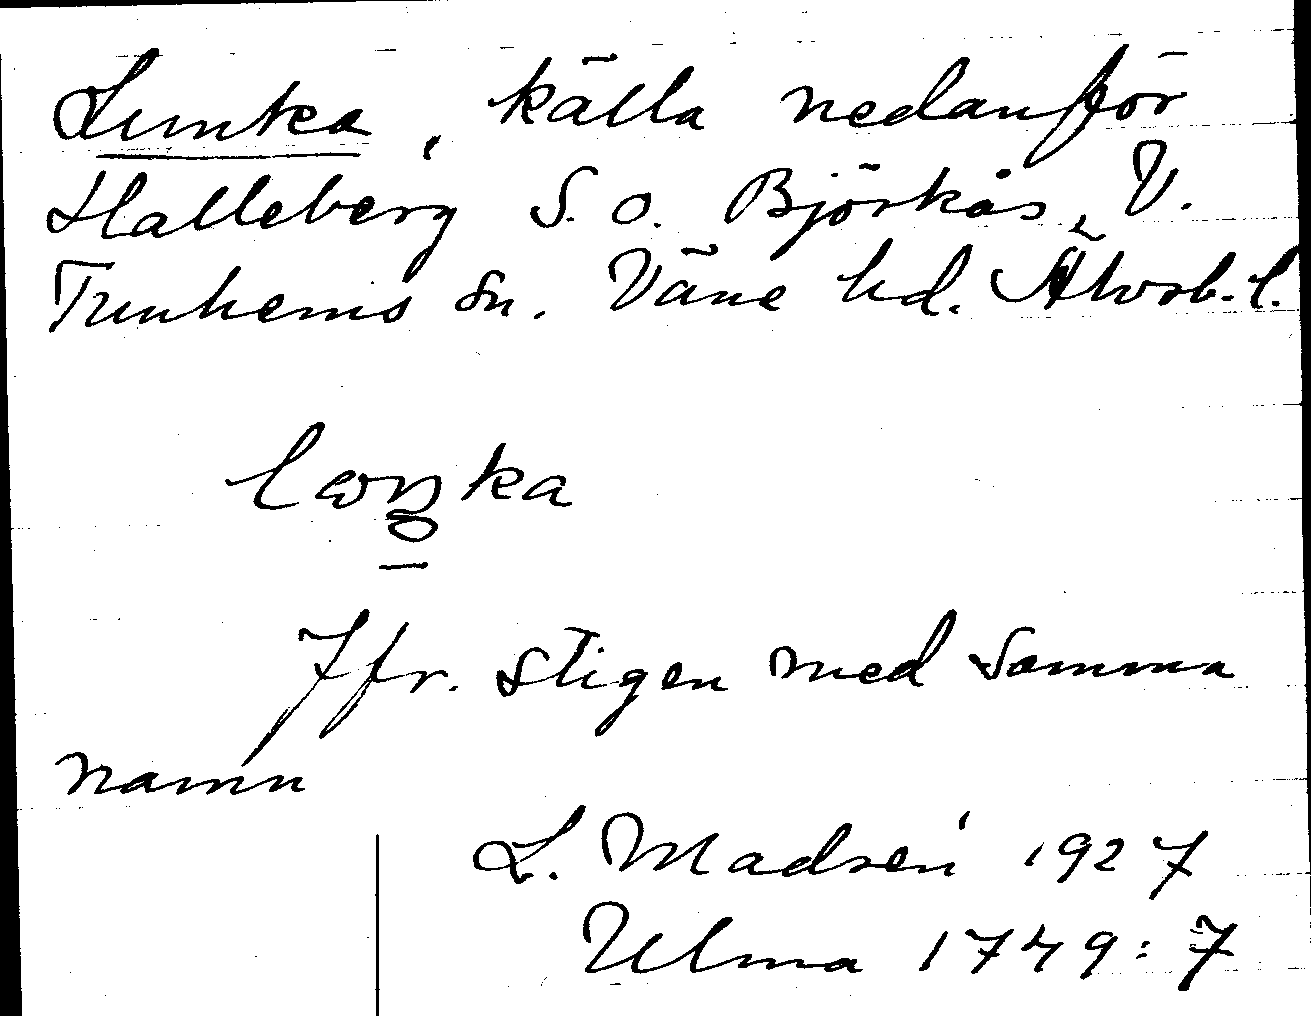 Lunka, källa nedanför
Halleberg S.O. Björkås, V.
Tunhems sn. Väne hd. Älvsb. l.
Jfr. stigen med samma
namn
L. Madsén 1927
Ulma 1749:7